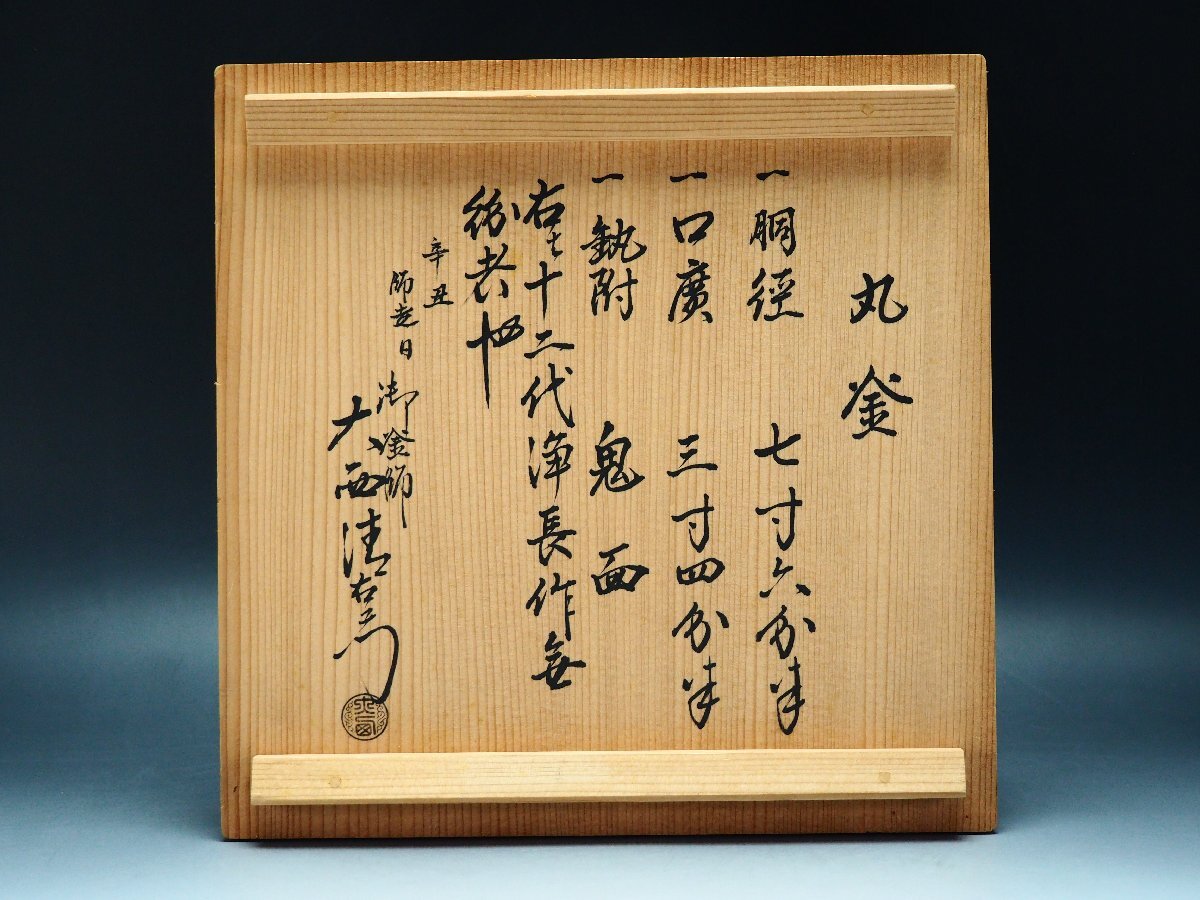 丸釜
一 胴徑 七寸六分半
一 口廣 三寸四分半
一 釻附 鬼面
右者十二代浄長作無
紛者也
辛丑
師走日
御釜師
大西清右衛門
大西